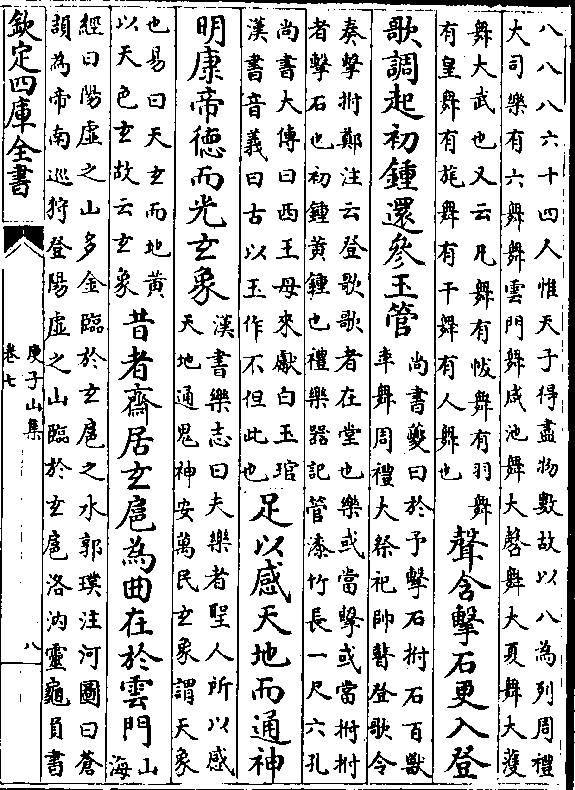 八八八六十四人惟天子得盡物數故以八為列周禮
大司樂有六舞舞雲門舞咸池舞大磬舞大夏舞大濩
舞大武也又云凡舞有帗舞有羽舞
有皇舞有旄舞有干舞有人舞也
聲含擊石更入登
歌調起初鍾還參玉管
尚書夔曰於予擊石拊石百獸
率舞周禮大祭祀帥瞽登歌令
奏擊拊鄭注云登歌歌者在堂也樂或當擊或當拊拊
者擊石也初鍾黃鍾也禮樂器記管漆竹長一尺六孔
尚書大傳曰西王母來獻白玉琯
漢書音義曰古以玉作不但此也
足以感天地而通神
明康帝德而光玄象
漢書樂志曰夫樂者聖人所以感
天地通鬼神安萬民玄象謂天象
也易曰天玄而地黃
以天色玄故云玄象
昔者齋居玄扈為曲在於雲門
山
海
經曰陽虛之山多金臨於玄扈之水郭璞注河圖曰蒼
頡為帝南巡狩登陽虛之山臨於玄扈洛汭靈龜負書
欽定四庫全書
庾子山集
卷七
八